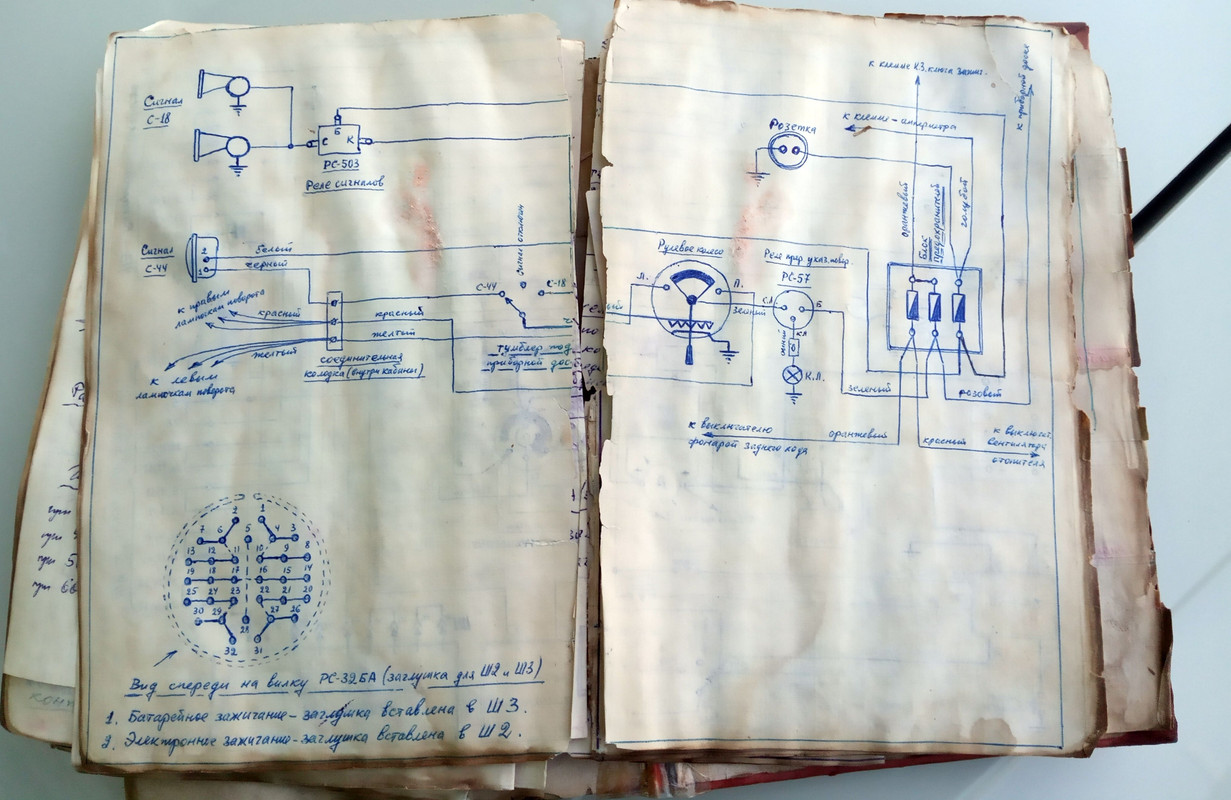 Сигнал
С-18
Б
С
К
РС-503
Реле сигналов
Сигнал
С-44
2
1
белый
черный
к правым
лампочкам поворота
красный
желтый
к левым
лампочкам поворота
красный
желтый
соединительная
колодка (внутри кабины)
С-44
С-18
тумблер под
приборной дос
2 1
7 6 5 4 3
13 12 11 10 9 8
19 18 17 16 15 14
25 24 23 22 21 20
30 29 28 27 26
32 31
Вид спереди на вилку РС-32БА (заглушка для Ш2 и Ш3)
1. Батарейное зажигание - заглушка вставлена в Ш3.
2. Электронное зажигание - заглушка вставлена в Ш2.
к клемме КЗ, ключа зажиг.
к приборной доске
к клемме - амперметра
Розетка
оранжевый
Блок
предохранителей
голубой
Рулевое колесо
Л.
П.
Реле прер. указ. повор.
РС-57
СЛ
Б
КЛ
синий
К.Л.
зеленый
розовый
к выключателю
фонарей заднего хода
оранжевый
красный
к выключат.
вентилятора
отопителя